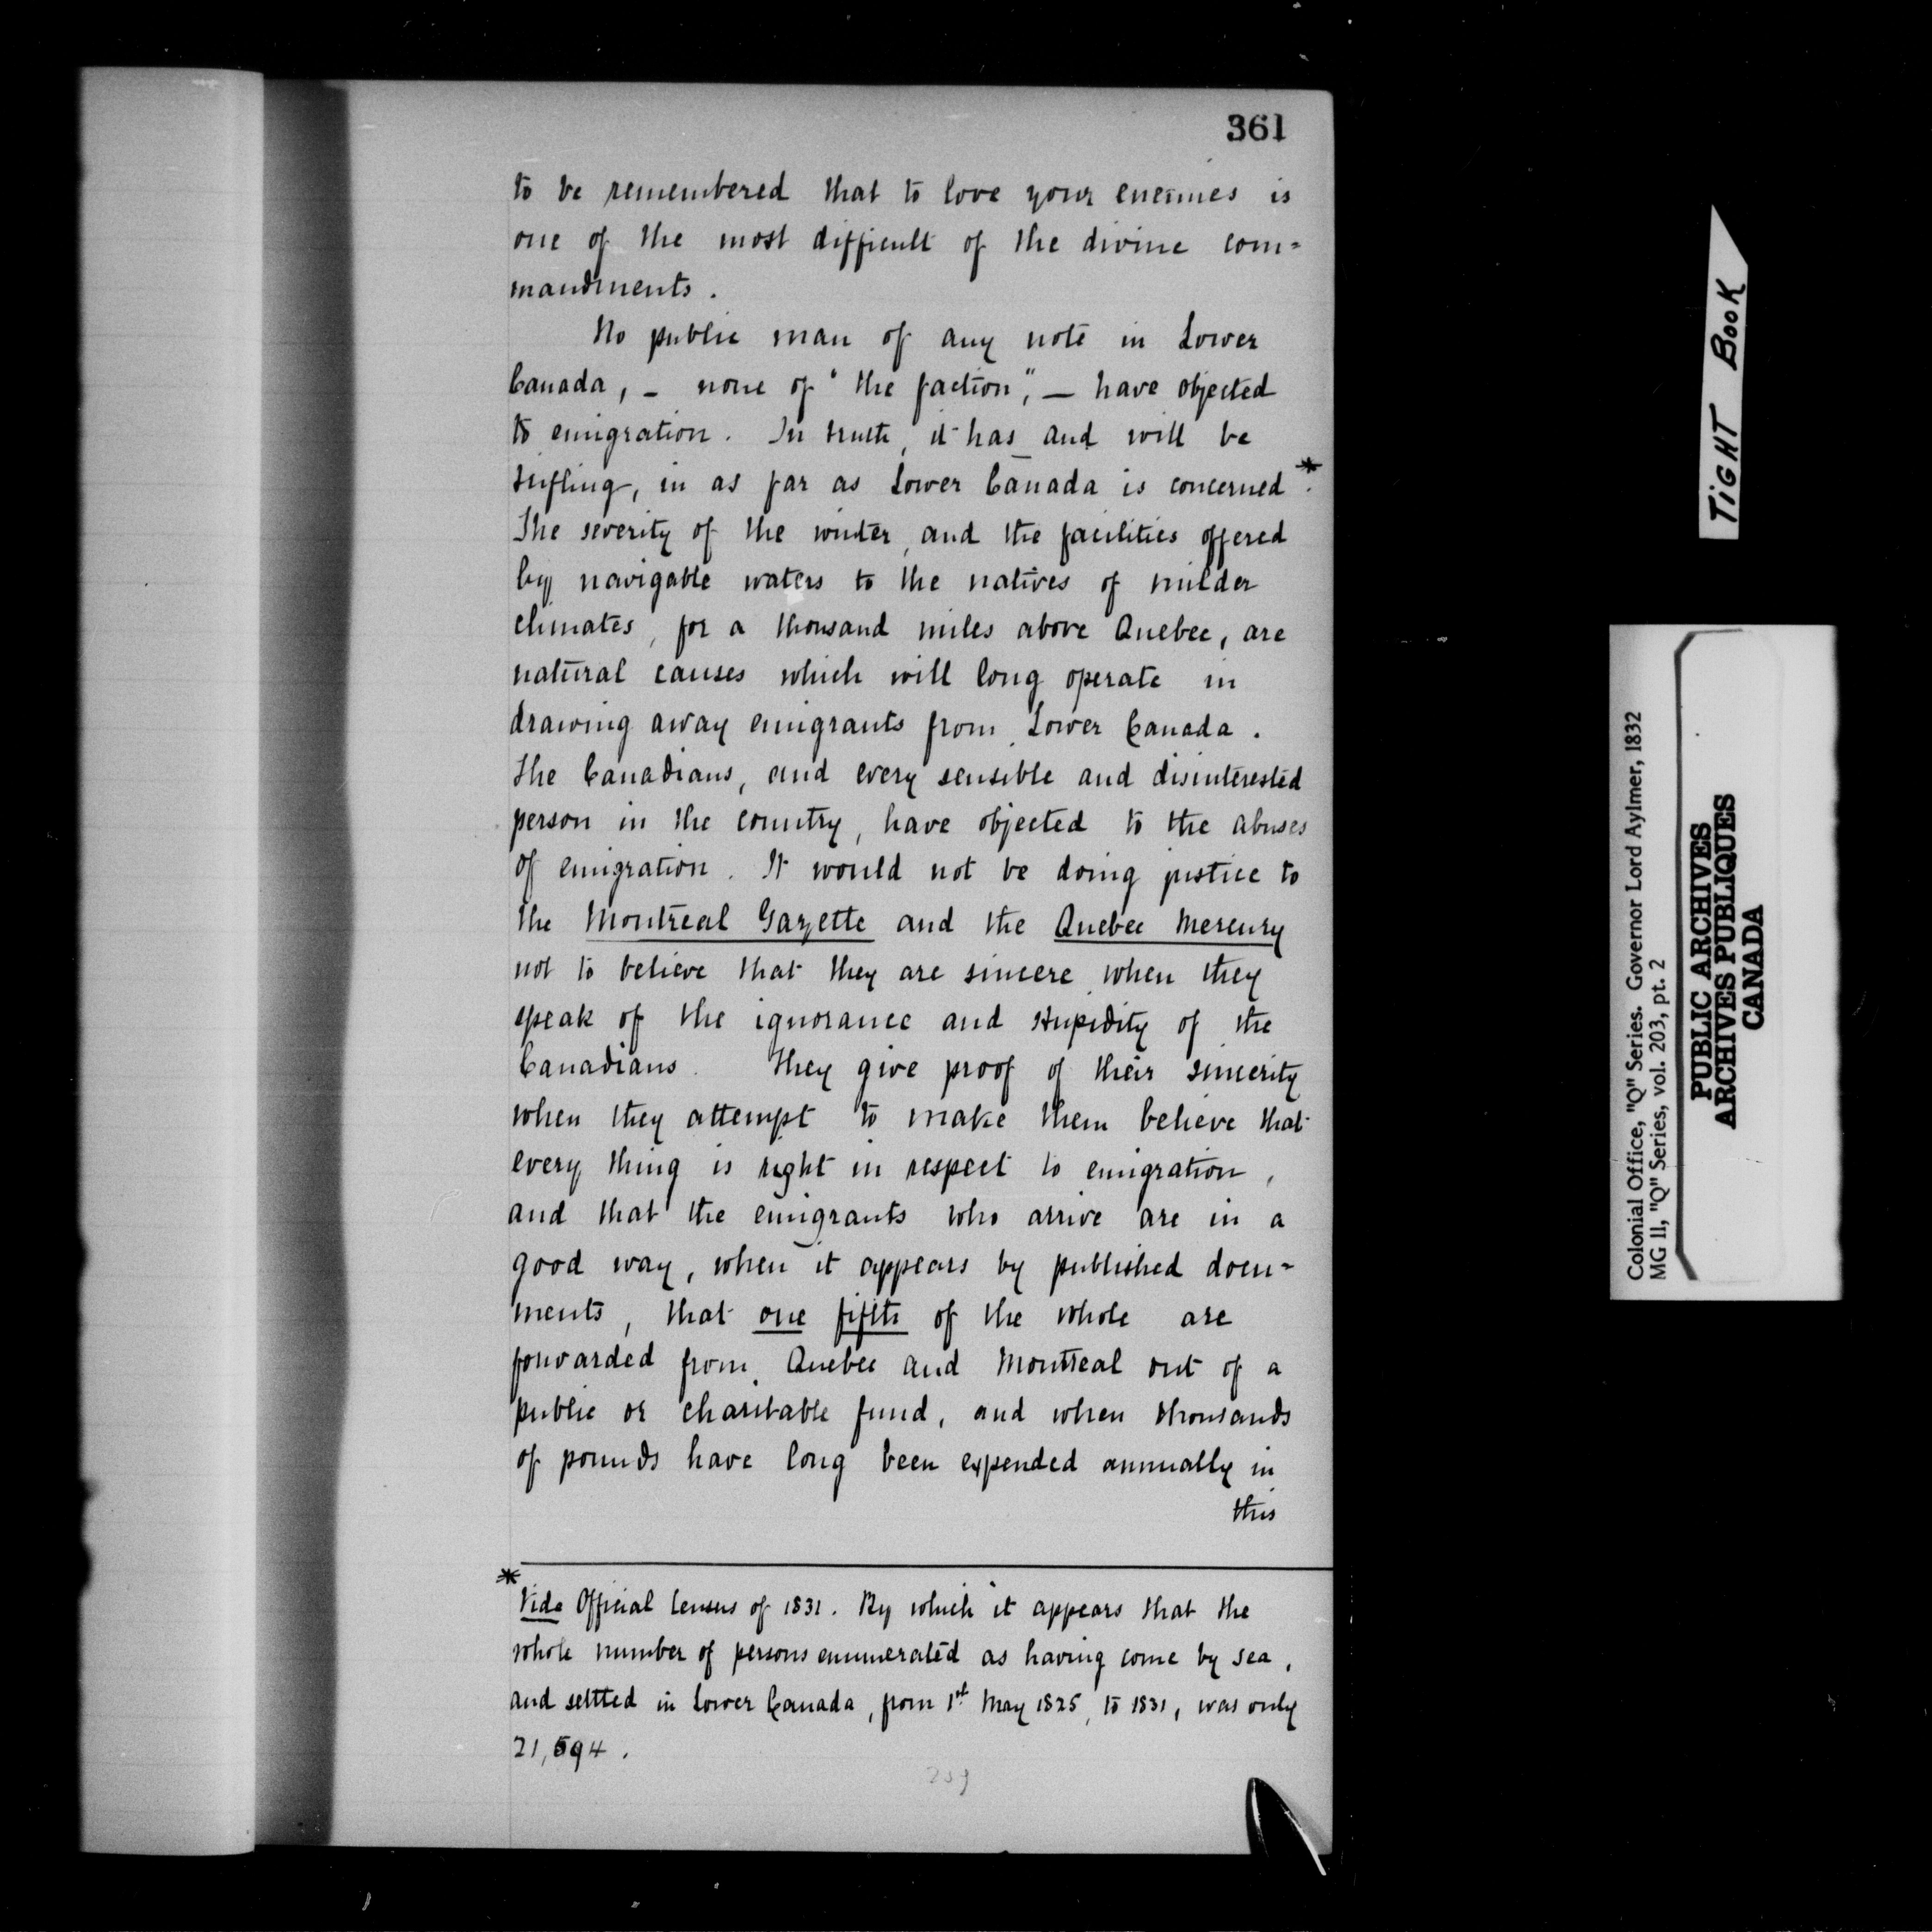 361
to be remembered that to love your enemies is
one of the most difficult of the divine com=
mandments.
No public man of any note in Lower
Canada, - none of "the faction", — have objected
to emigration. In truth, it has and will be
trifling, in as far as Lower Canada is concerned*.
The severity of the winter, and the facilities offered
by navigable waters to the natives of milder
climates, for a thousand miles above Quebec, are
natural causes which will long operate in
drawing away emigrants from Lower Canada.
The Canadians, and every sensible and disinterested
person in the country, have objected to the abuses
of emigration. It would not be doing justice to
the Montreal Gazette and the Quebec Mercury
not to believe that they are sincere when they
speak of the ignorance and stupidity of the
Canadians. They give proof of their sincerity
when they attempt to make them believe that
every thing is right in respect to emigration,
and that the emigrants who arrive are in a
good way, when it appears by published docu=
ments, that one fifth of the whole are
forwarded from Quebec and Montreal out of a
public or charitable fund, and when thousands
of pounds have long been expended annually in
this
* Vide Official Census of 1831. By which it appears that the
whole number of persons enumerated as having come by sea,
and settled in Lower Canada, from 1st May 1825, to 1831, was only
21,594.
259
TIGHT BOOK
Colonial Office, "Q" Series. Governor Lord Aylmer, 1832
MG 11, "Q" Series, vol. 203, pt. 2
PUBLIC ARCHIVES
ARCHIVES PUBLIQUES
CANADA